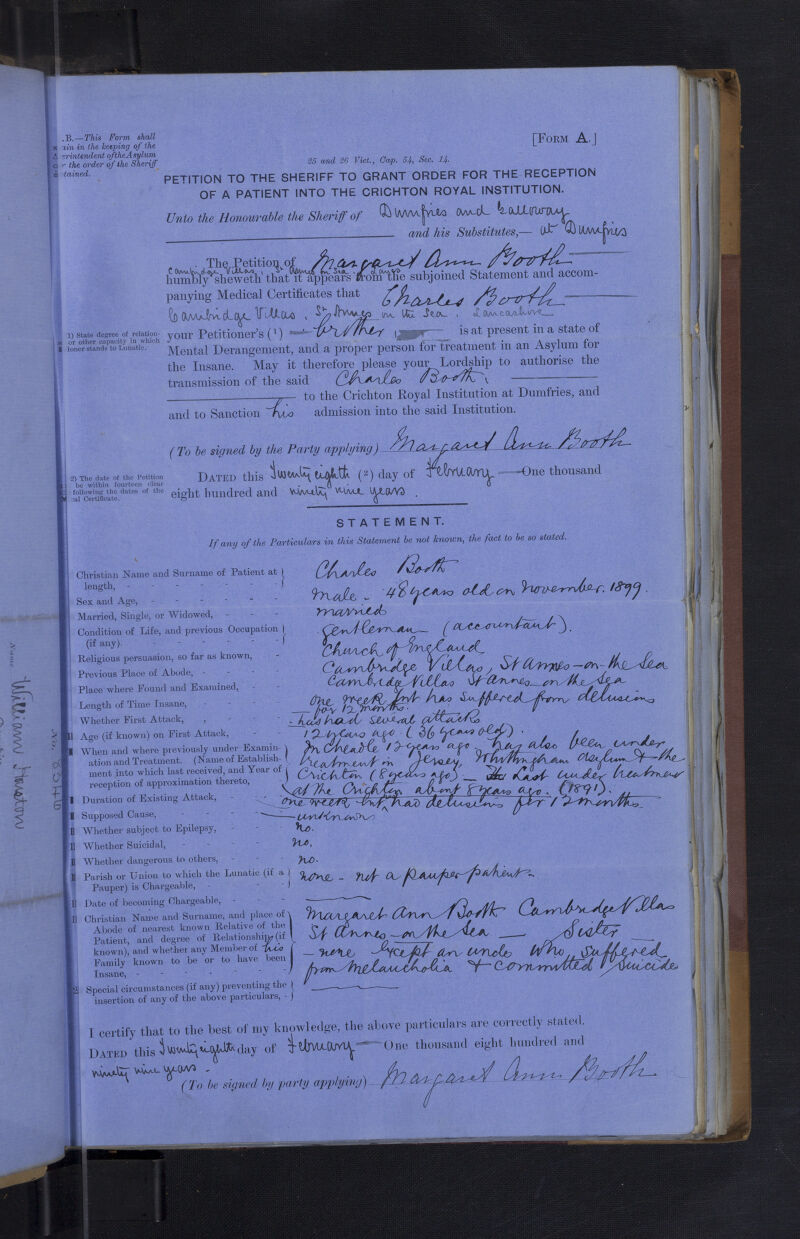 .B.—This Form shall
in the keeping of the
erintendent of the Asylum
the order of the Sheriff
tained.
[FORM A.]
25 and 26 Vict., Cap. 54, Sec. 14.
PETITION TO THE SHERIFF TO GRANT ORDER FOR THE RECEPTION
OF A PATIENT INTO THE CRICHTON ROYAL INSTITUTION.
Unto the Honourable the Sheriff of Dumfries and Galloway
and his Substitutes,— at Dumfries
The Petition of Margaret Ann Booth
Cambridge Villas, St Annes on Sea, Lancs
humbly sheweth that it appears from the subjoined Statement and accom-
panying Medical Certificates that Charles Booth
Cambridge Villas, St Annes on the Sea, Lancashire
1) State degree of relation-
or other capacity in which
ioner stands to Lunatic.
your Petitioner's (1) brother is at present in a state of
Mental Derangement, and a proper person for treatment in an Asylum for
the Insane. May it therefore please your Lordship to authorise the
transmission of the said Charles Booth,
to the Crichton Royal Institution at Dumfries, and
and to Sanction his admission into the said Institution.
(To be signed by the Party applying) Margaret Ann Booth
2) The date of the Petition
be within fourteen clear
following the dates of the
cal Certificate.
DATED this Twenty eighth (2) day of February One thousand
eight hundred and ninety nine years.
STATEMENT.
If any of the Particulars in this Statement be not known, the fact to be so stated.
Christian Name and Surname of Patient at length, - Charles Booth
Sex and Age, - Male - 48 years old on November. 1899.
Married, Single, or Widowed, - married
Condition of Life, and previous Occupation (if any) - Gentleman - (accountant).
Religious persuasion, so far as known, - Church of England
Previous Place of Abode, - Cambridge Villas, St Annes-on-the Sea
Place where Found and Examined, - Cambridge Villas St Annes on the Sea
Length of Time Insane, - One week but has suffered from delusions
for 12 months.
Whether First Attack, - has had several attacks
Age (if known) on First Attack, - 12 years ago. (36 years old).
When and where previously under Examin-
ation and Treatment. (Name of Establish-
ment into which last received, and Year of
reception of approximation thereto,
In Cheadle 12 years ago. has also been under
treatment in Jersey, Whittingham Asylum & the
Crichton (8 years ago) - Last under treatment
at the Crichton about 8 years ago. (1891).
Duration of Existing Attack, - One week but had delusions for 12 months.
Supposed Cause, - unknown
Whether subject to Epilepsy, - no.
Whether Suicidal, - no.
Whether dangerous to others, - no.
Parish or Union to which the Lunatic (if a
Pauper) is Chargeable, - none - not a pauper patient.
Date of becoming Chargeable, -
Christian Name and Surname, and place of
Abode of nearest known Relative of the
Patient, and degree of Relationship (if
known), and whether any Member of his
Family known to be or to have been
Insane, -
Margaret Ann Booth Cambridge Villas
St Annes-on the Sea - Sister
- none except an uncle who suffered
from Melancholia & committed Suicide
Special circumstances (if any) preventing the
insertion of any of the above particulars, -
I certify that to the best of my knowledge, the above particulars are correctly stated.
DATED this Twenty eighth day of February One thousand eight hundred and
ninety nine years.
(To be signed by party applying) Margaret Ann Booth
Name William